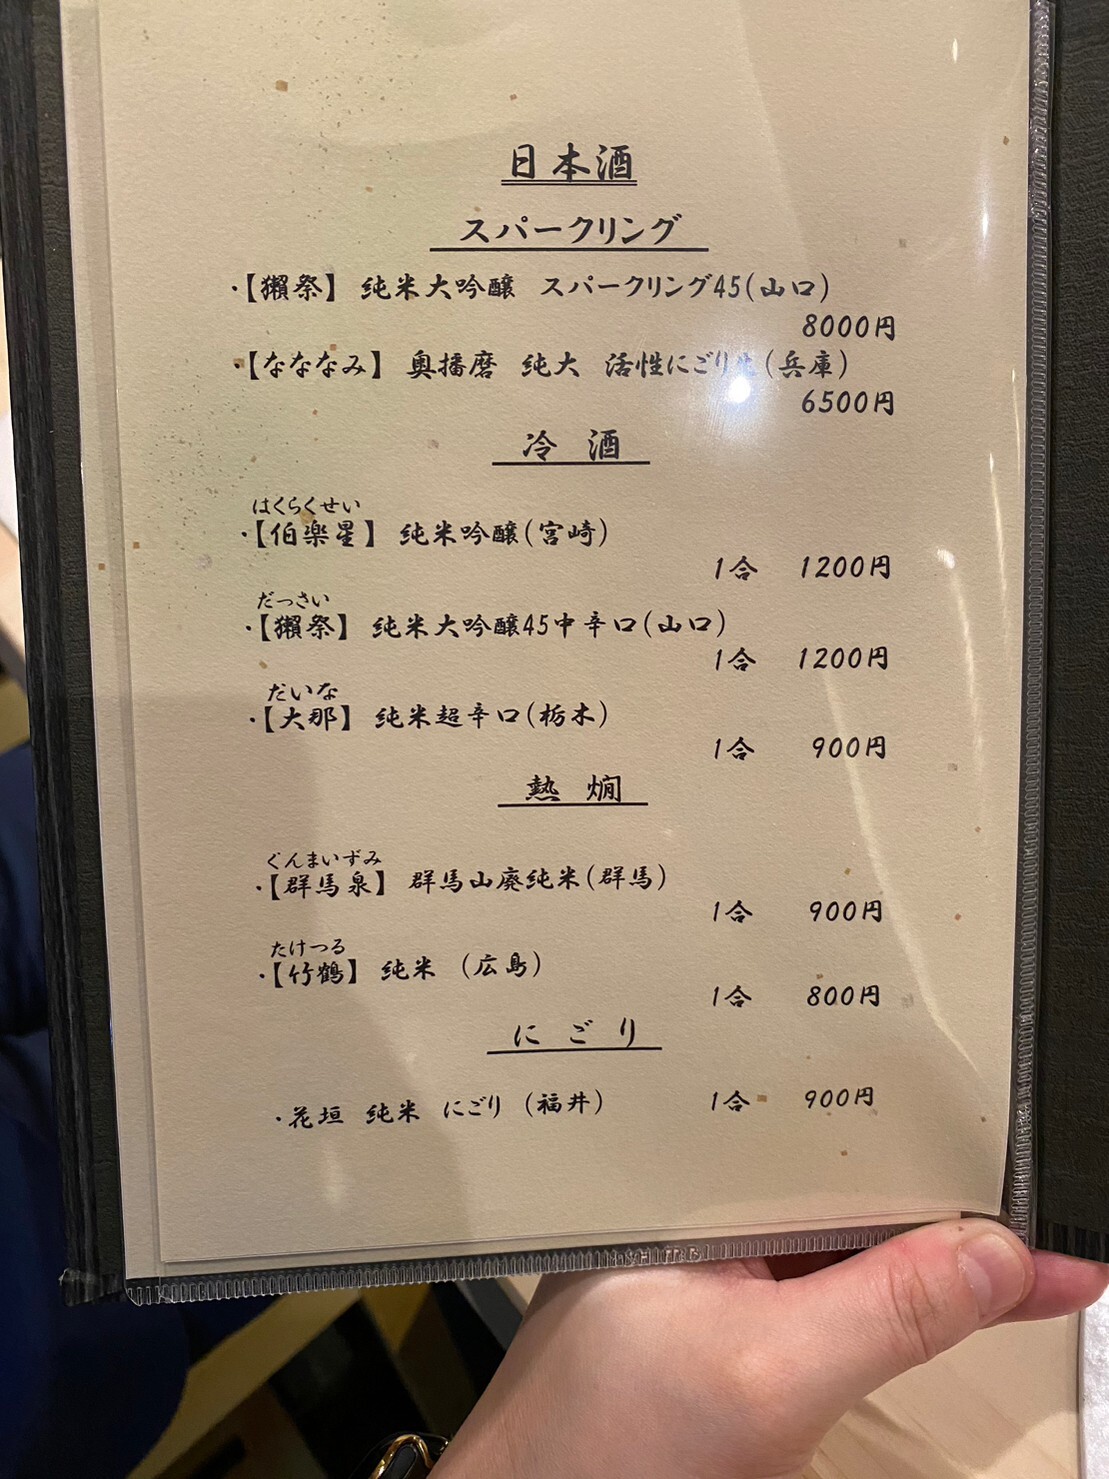 日本酒
スパークリング
・【獺祭】 純米大吟醸 スパークリング45(山口)
8000円
・【なななみ】 奥播磨 純大 活性にごり生(兵庫)
6500円
冷 酒
はくらくせい
・【伯楽星】 純米吟醸(宮崎)
1合 1200円
だっさい
・【獺祭】 純米大吟醸45中辛口(山口)
1合 1200円
だいな
・【大那】 純米超辛口(栃木)
1合 900円
熱 燗
ぐんまいずみ
・【群馬泉】 群馬山廃純米(群馬)
1合 900円
たけつる
・【竹鶴】 純米 (広島)
1合 800円
に ご り
・花垣 純米 にごり (福井) 1合 900円
SHIMBI